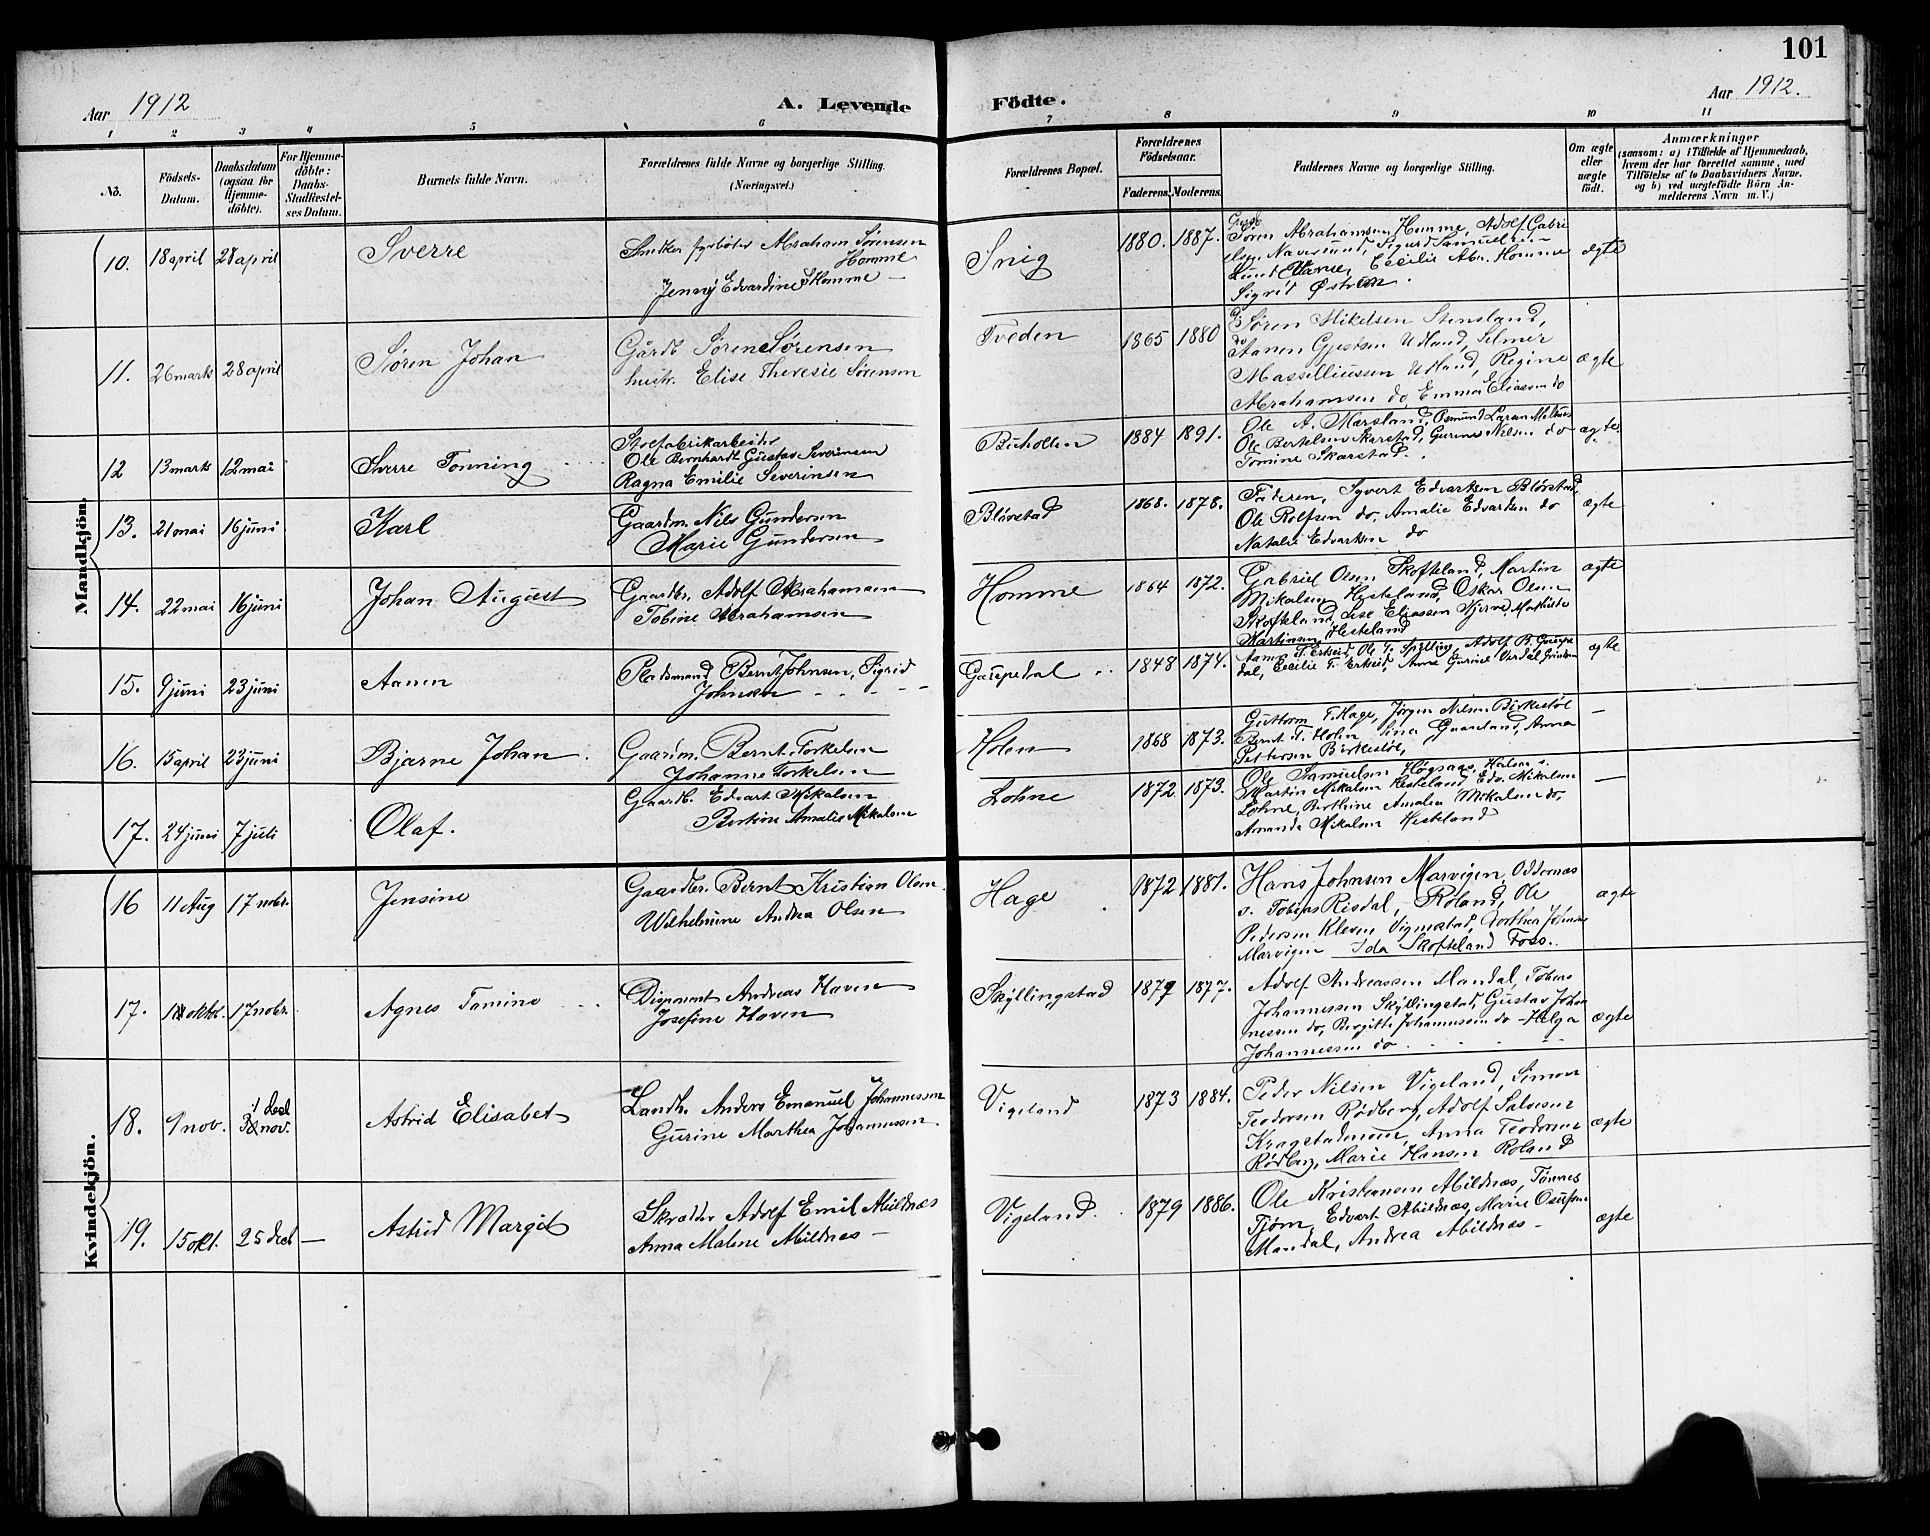 101
Aar 1912
A. Levende
Födte.
Aar 1912.
1 2 3 4 5 6 7 8 9 10 11
No.
Födsels-
Datum.
Daabsdatum
(ogsaa for
Hjemme-
döbte).
For Hjemme-
döbte:
Daabs-
Stadfæstel-
ses Datum.
Barnets fulde Navn.
Forældrenes fulde Navne og borgerlige Stilling.
(Næringsvei.)
Forældrenes Bopæl.
Forældrenes
Födselsaar.
Faderens. Moderens.
Faddernes Navne og borgerlige Stilling.
Om ægte
eller
uægte
født.
Anmærkninger
(saasom: a) i Tilfælde af Hjemmedaab,
hvem der har forrettet samme, med
Tilföielse af to Daabsvidners Navne,
og b) ved uægtefödte Börn An-
melderens Navn m. V.)
Mandkjön.
10. 18 april 28 april Sverre
Abraham Sørensen
Homme
Jenny Edvardine Homme
Snig 1880. 1887.
Søren Abrahamsen Homme, Adolf Gabri
Cecilie Abr. Homme
Sigrid
ægte
11. 26 marts 28 april Søren Johan
Gårdb Søren Sørensen
hustr. Elise Theresie Sørensen
Tveden 1865 1880
Søren Mikelsen Stensland,
Aanen Gjertsen Udland, Selmer
Massilliussen Udland, Regine
Abrahamsen do, Emma Eliassen do
ægte
12 13 marts 12 mai Sverre Tonning
Stolfabrikarbeider
Ole Bernhardt Gustav Severinsen
Ragna Emilie Severinsen
1884 1891.
Ole A. Marstand, Osmund Larsen
Ole Bertelsen Skarstad, Gurine Nilsen do
Tomine Skarstad.
ægte
13. 21 mai 16 juni Karl
Gaardm. Nils Gundersen
Marie Gundersen
Bløvstad 1868. 1878.
Faderen, Syvert Edvartsen Bløvstad,
Ole Rolfsen do, Amalie Edvardsen do
Natalie Edvartsen do
ægte
14. 22 mai 16 juni Johan August
Gaardbr. Adolf Abrahamsen
Tobine Abrahamsen
Homme 1864 1872.
Gabriel Olsen Skofteland, Martin
Mikalsen Hesteland, Oskar Olsen
Skofteland, Lise Eliassen
Martinsen Hesteland
ægte
15. 9 juni 23 juni Aanen
Pladsmand Bernt Johnsen, Sigrid
Johnsen
1848 1874.
Ertseid, Ole T. Spilling, Adolf B.
dal, Cecilie T. Ertseid, Anne Gurine
ægte
16. 15 april 23 juni Bjarne Johan
Gaardm. Bernt Torkelsen
Johanne Torkelsen
Holen 1868 1873.
Guttorm T. Hage, Jørgen Nilsen Birkestøl
Bernt T. Holen Sina Gaseland, Anna
Pettersen Birkestøl,
—
17. 24 juni 7 juli Olaf.
Gaardb. Edvart Mikalsen
Bertine Amalie Mikalsen
Lohne 1872 1873.
Ole Samuelsen Høgsaas,
Martin Mikalsen Hesteland, Edv. Mikalsen
Lohne, Amalia Mikalsen do,
Amanda Mikalsen Hesteland
—
Kvindekjön.
16 11 Aug 17 nobr. Jensine
Gaardbr. Bernt Kristian Olsen.
Wilhelmine Andrea Olsen
Hage 1872 1881.
Hans Johnsen Marvigen, Oddernæs
s. Tobias Risdal, Roland, Ole
Pedersen Kleven Vigmostad, Dorthea
Marvigen Ida Skofteland Foss.
ægte
17. oktbr. 17 nobr. Agnes Tomine
Disponent Andreas Haven
Josefine Haven
Skyllingstad 1879 1877.
Adolf Andreassen Mandal, Tobias
Johannessen Skyllingstad, Gustav Johan
nessen do, Birgitte Johannessen do Helga
Johannessen do
ægte
18. 9 nov. 1 decb nov. Astrid Elisabet
Landh. Anders Emanuel Johannessen
Gurine Marthea Johannessen
Vigeland 1873 1884.
Peder Nilsen Vigeland, Simon
Teodorsen Rødberg, Adolf Salvesen
Anna Teodorsen
Rødberg, Marie Hansen Roland
ægte
19. 15 okt. 25 decb — Astrid Margit
Skrædder Adolf Emil Abildnæs
Anna Malene Abildnæs —
Vigeland. 1879 1886.
Ole Kristiansen Abildnæs, Tønnes
Tjøm, Edvart Abildnæs, Marie
Mandal, Andrea Abildnæs —
ægte